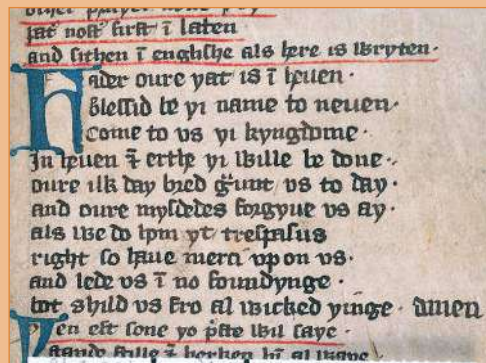 pat nost first ī laten
and sithen ī englishe als here is wryten·
ffader oure yat is ī heuen·
blessid be yi name to neuen·
Come to vs yi kyngdome·
In heuen ⁊ erthe yi wille be done·
oure ilk day bred gͣunt vs to day·
and oure mysdedes forgyue vs ay·
als we do hom yt trespasus
right so haue merci vp on vs·
and lede vs ī no foundynge·
bot shild vs fro al wicked yinge· amen
en est sone yo pͤste wil saye·
stande stille ⁊ herken hī al waye·